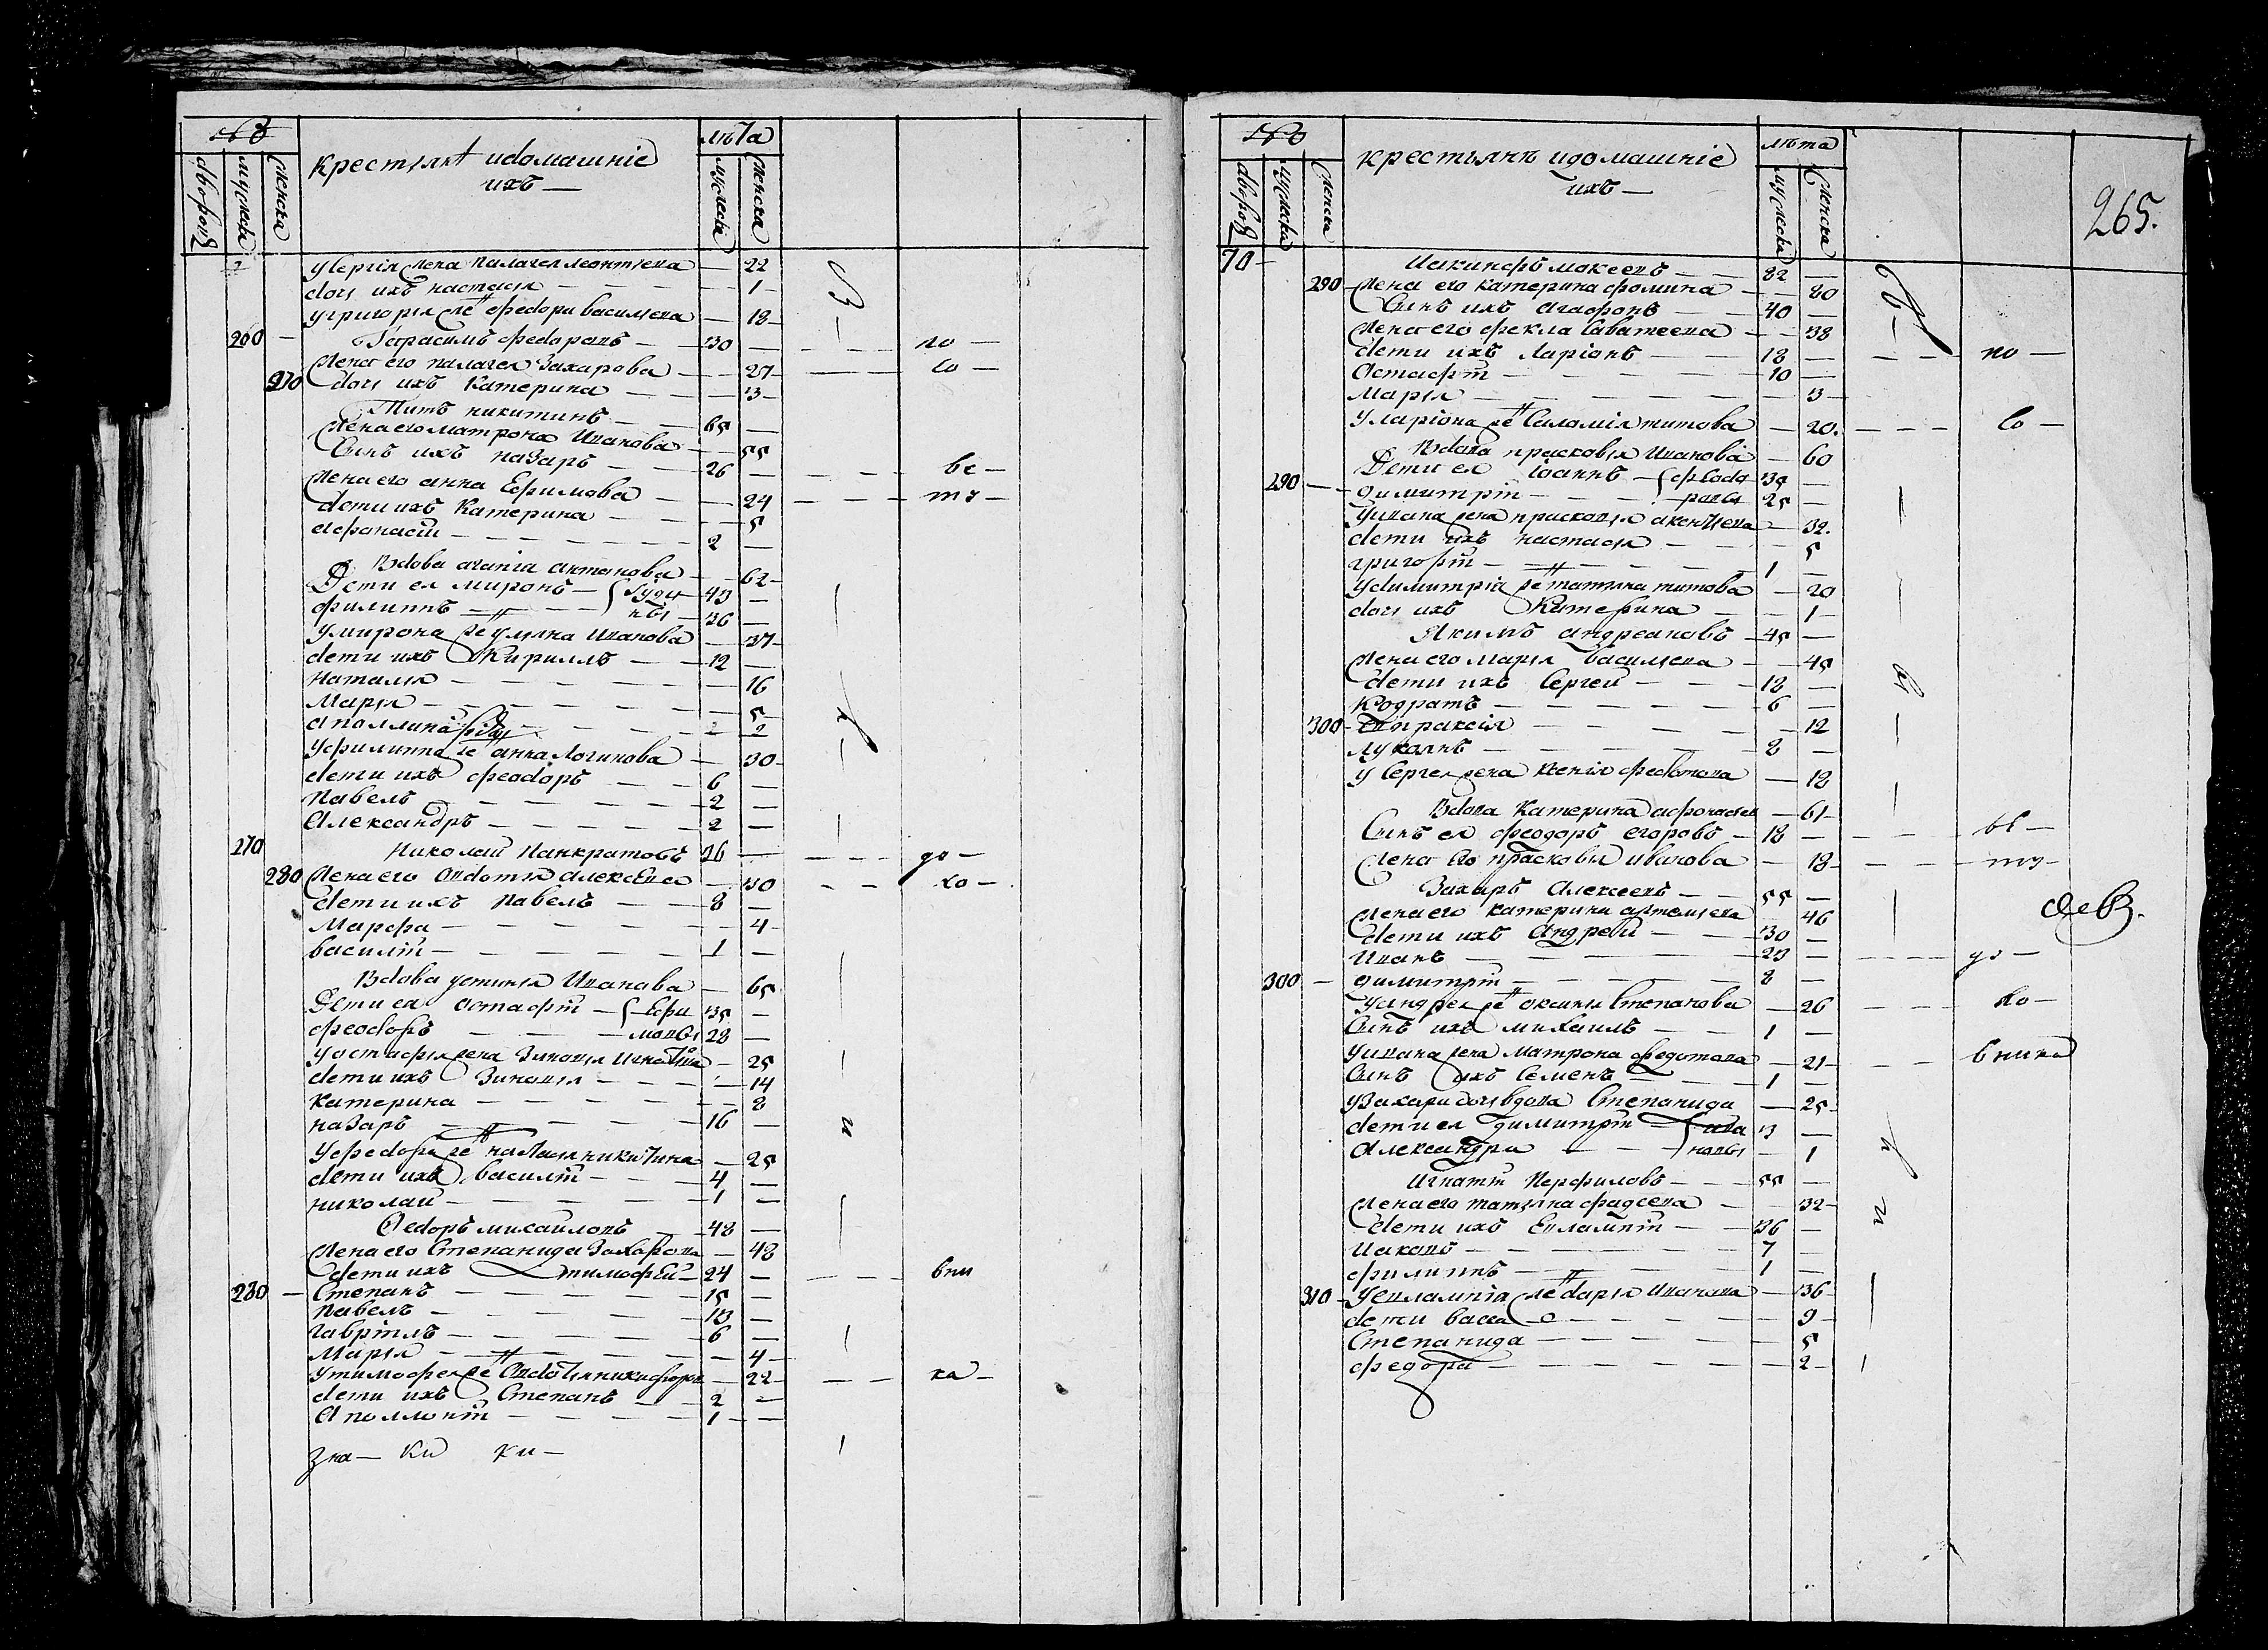 №
крестьянѣ идомашніе
ихъ —
лѣта
дворовъ
мужеска
женска
мужеска
женска
у Сергія жена палагея леонтьева — 22
дочь ихъ настасья — 1
угригорья же федора васильева — 18
260 — Гарасимъ федоровъ — 30 — по —
жена его палагея Захарова — 27 — со —
270 дочь ихъ Катерина — 3
Титъ никитинъ — 65
жена его матрона Иванова — 55
Сынъ ихъ назаръ — 26 — ве —
жена его анна Ефимова — 24 — ту —
дети ихъ Катерина — 5
афонасій — 2
Вдова агапіа антонова — 62
Дети ея миронъ — 43
филиппъ — 36
умирона же ульяна Иванова — 37
дети ихъ Кириллъ — 12
наталья — 16
Марья — 5
аполлинарія — 2
уфилиппа же анна Логинова — 30
дети ихъ феодоръ — 6
Павелъ — 2
Александръ — 2
270 Николай Панкратовъ 36 — до —
280 жена его Авдотья алексѣева — 30 — хо —
дети ихъ Павелъ — 8
Марфа — 4
василій — 1
Вдова устинья Иванова — 65
Дети ея остафій — Ефи 35
феодоръ — мовы 28
уостафья жена Зиновья Игнатьева — 25
дети ихъ Зиновья — 14
катерина — 8
назаръ — 16
уфедора же настасья никитина — 25
дети ихъ василій — 4
николай — 1
Федоръ михайловъ — 48
жена его Степанида Захарова — 48
дети ихъ тимофей — 24 — вни
280 — Степанъ — 15
Павелъ — 13
гавріилъ — 6
Марія — 4
утимофея же Авдотья никифорова — 22 — ка —
дети ихъ Степанъ — 2
Аполлоній — 1
Зна — ки ки —
№
крестьянъ идомашніе
ихъ —
лѣта
265.
дворовъ
мужеска
женска
мужеска
женска
70 — Иакинфъ мокеевъ — 82
290 — жена его катерина фомина — 80
Сынъ ихъ агафонъ — 40
жена его фекла Саватеева — 38
дети ихъ Ларіонъ — 18 — по —
Остафій — 10
Марья — 3
уларіона же Саломія титова — 20. — со —
Вдова прасковья Иванова — 60
Дети ея іоаннъ — 35
290 — димитрій — 25
уивана жена прасковья аксентьева — 32.
дети ихъ настасья — 5
григорій — 1
удимитрія же татьяна титова — 20
дочь ихъ Катерина — 1
Якимъ андреановъ — 45
жена его марья васильева — 45
дети ихъ Сергей — 18
Кодратъ — 6
300 — праксія — 12
лукьянъ — 8
у Сергея жена Ксенія федотова — 18
Вдова Катерина афонасьева — 61
Сынъ ея феодоръ егоровъ — 18 — ве —
жена его прасковья иванова — 18 — ту —
Захаръ Алексеевъ — 55
жена его катерина артемьева — 46
дети ихъ андрей — 30
Иванъ — 23 — до —
300 — димитрій — 8
уандрея же оксинья Степанова — 26 — хо —
Сынъ ихъ михаилъ — 1
уивана жена матрона федотова — 21 — вника
Сынъ ихъ Семенъ — 1
узахара дочь вдова Степанида — 25
дети ея димитрій — ива 3
Александра — новы — 1
Игнатій Перфиловъ — 55
жена его татьяна фадеева — 32
дети ихъ Евлампій — 36
Иаковъ — 7
филиппъ — 1
310 — уевлампія же дарья Иванова — 36
дети васса — 9
Степанида — 5
федора — 2